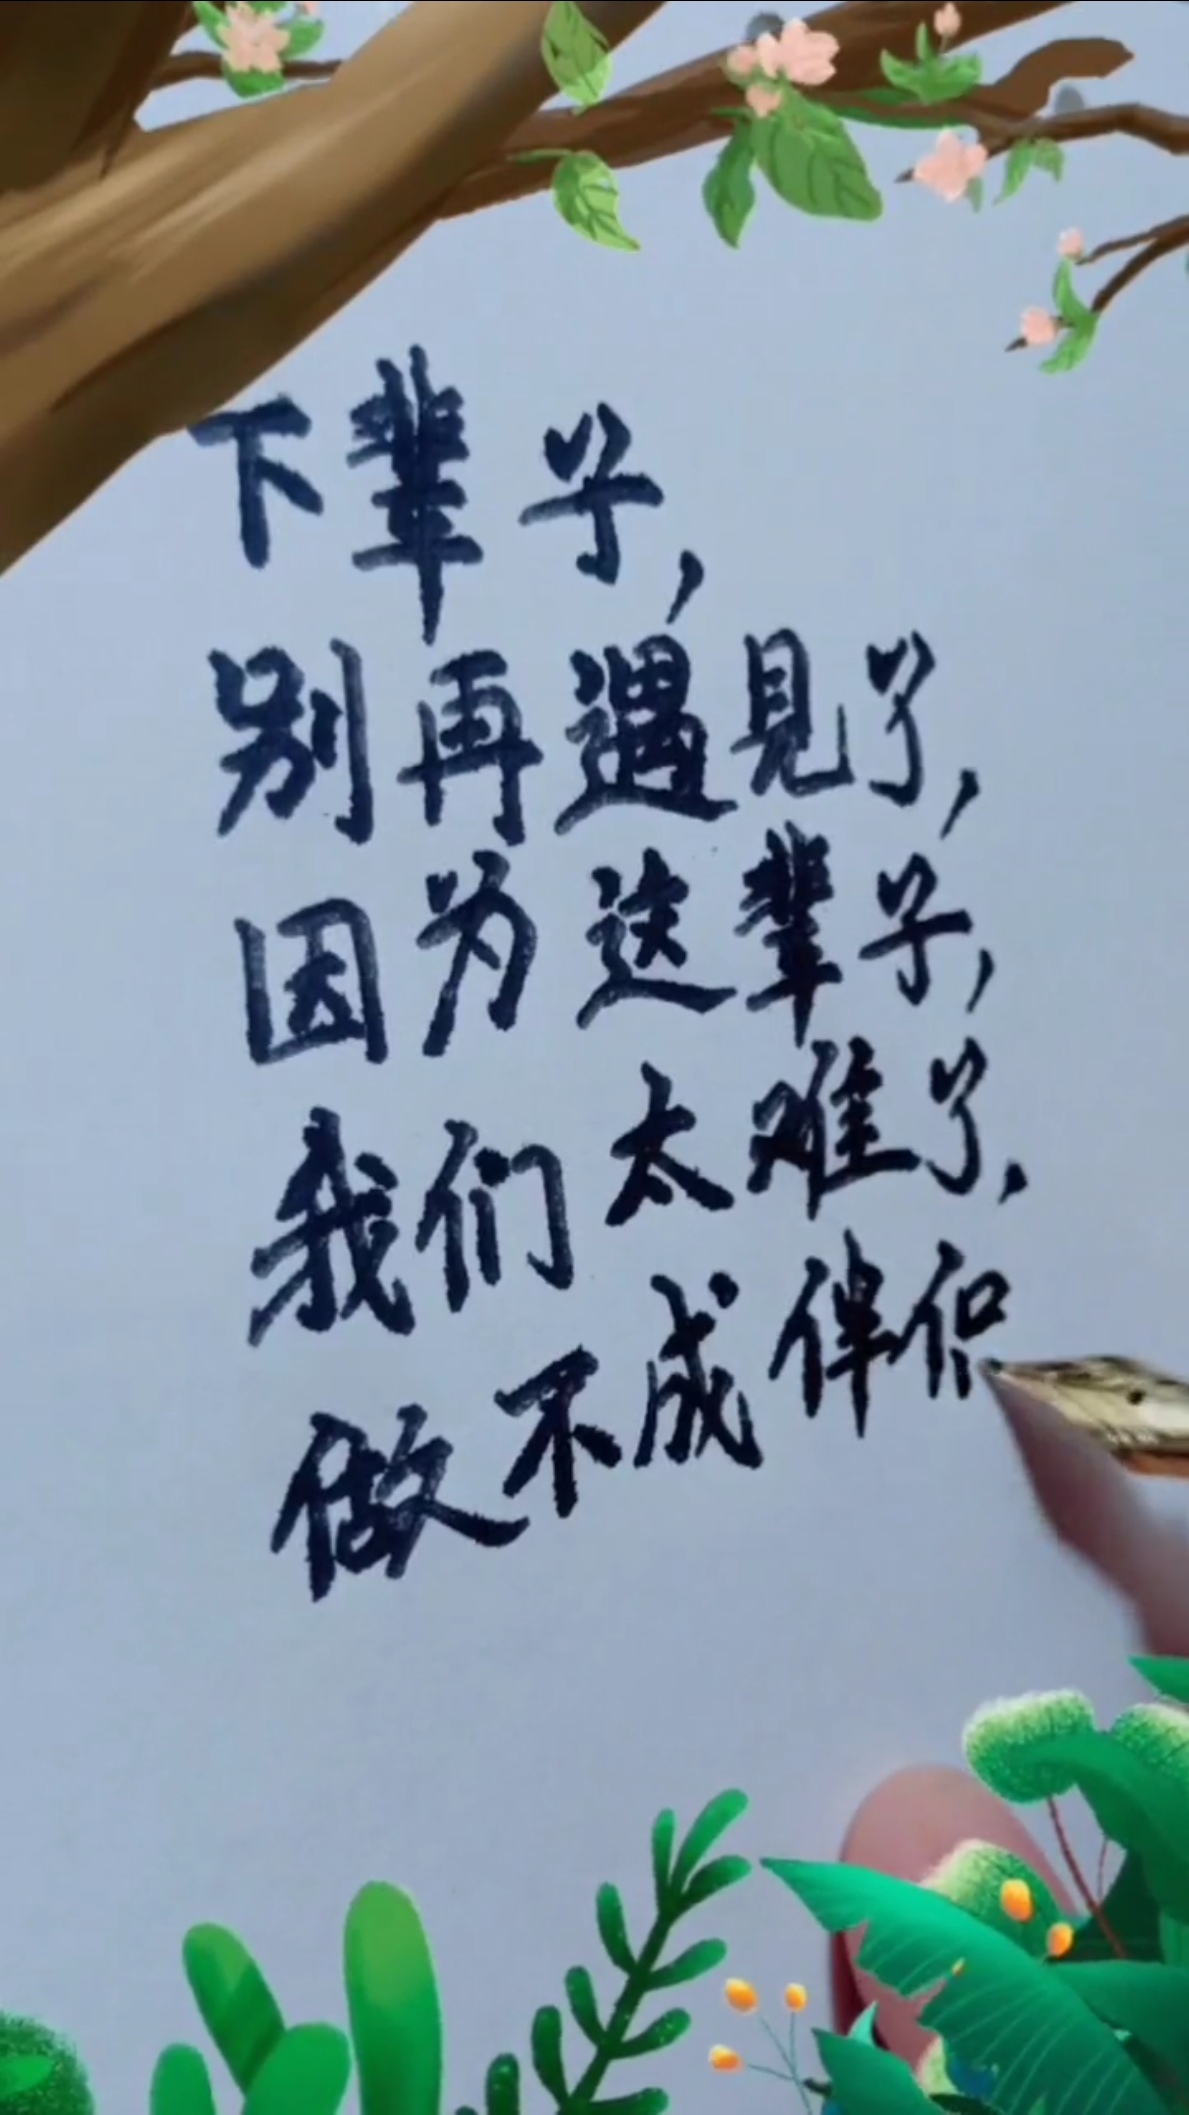 下辈子，
别再遇见了，
因为这辈子，
我们太难了，
做不成伴